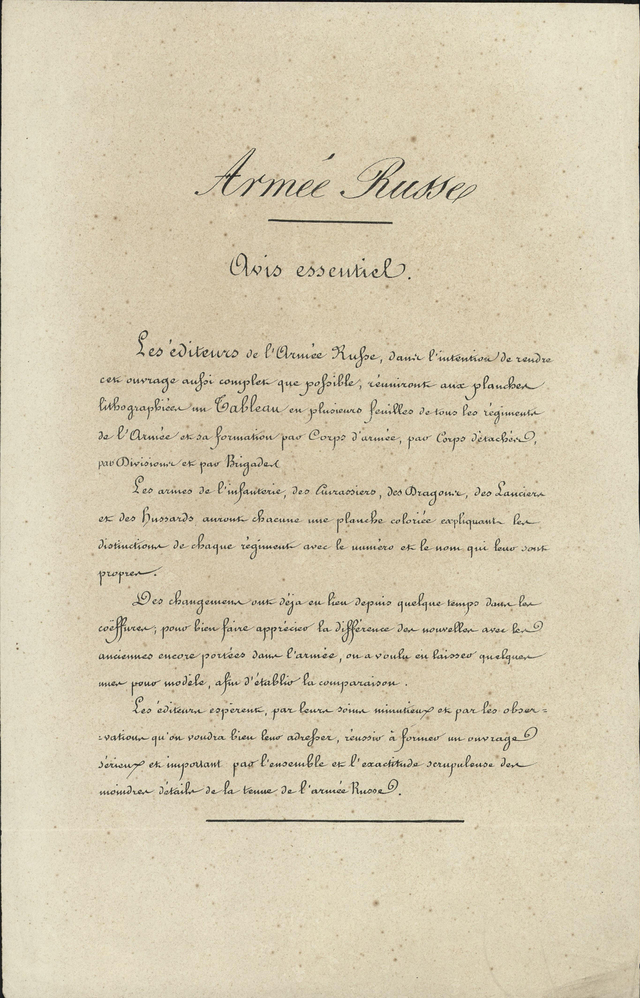 Armée Russe
Avis essentiel.
Les éditeurs de l'Armée Russe, dans l'intention de rendre
cet ouvrage aussi complet que possible, réuniront aux planches
lithographiées un Tableau en plusieurs feuilles de tous les régiments
de l'Armée et sa formation par Corps d'armée, par Corps détachés,
par Divisions et par Brigades.
Les armes de l'infanterie, des Cuirassiers, des Dragons, des Lanciers
et des Hussards auront chacune une planche coloriée expliquant les
distinctions de chaque régiment avec le numéro et le nom qui leur sont
propres.
Des changemens ont déja eu lieu depuis quelque temps dans les
coëffures; pour bien faire apprécier la différence des nouvelles avec les
anciennes encore portées dans l'armée, on a voulu en laisser quelques
unes pour modèle, afin d'établir la comparaison.
Les éditeurs espèrent, par leurs soins minutieux et par les obser=
=vations qu'on voudra bien leur adresser, réussir à former un ouvrage
sérieux et important par l'ensemble et l'exactitude scrupuleuse des
moindres détails de la tenue de l'armée Russe.